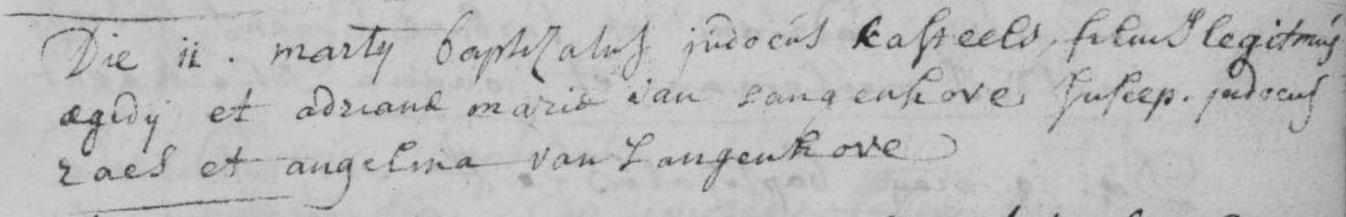 Die ii. martij baptizatus judocus kasteels filius legitimus
ægidij et adrianæ mariæ van Langenhove suscep. judocus
raes et angelina van Langenhove